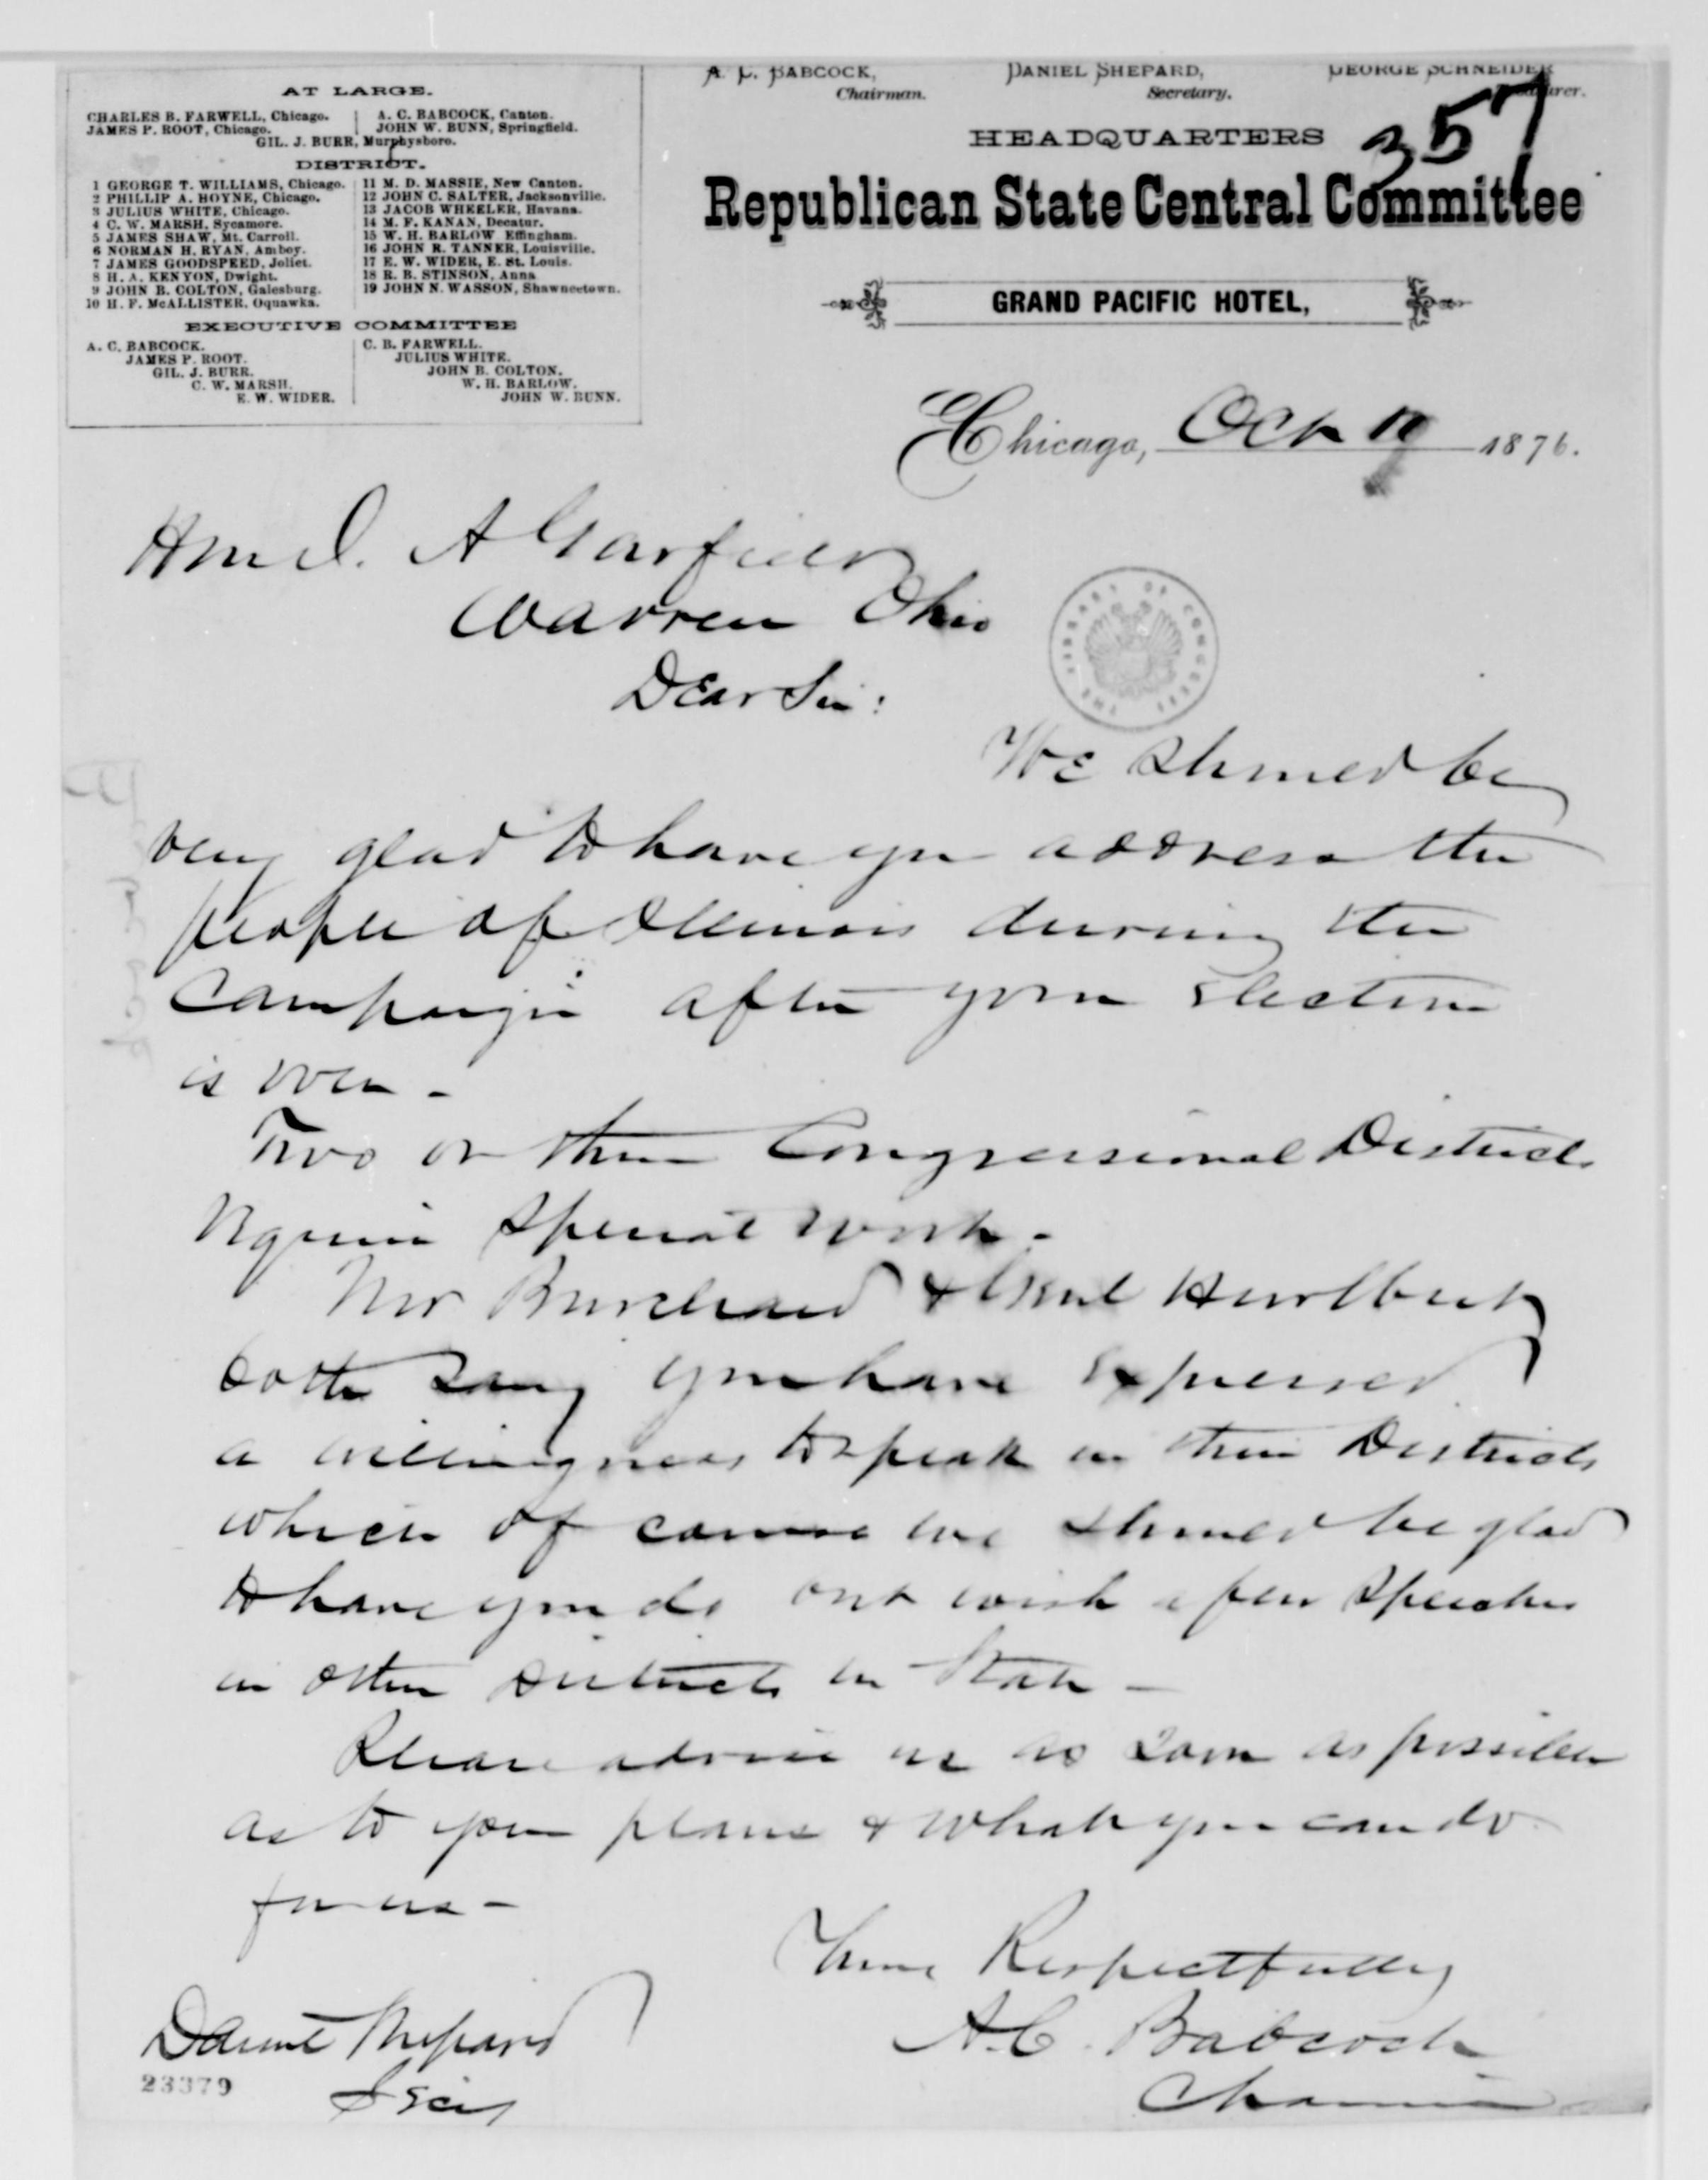 AT LARGE.
CHARLES B. FARWELL, Chicago.
JAMES P. ROOT, Chicago.
A. C. BABCOCK, Canton.
JOHN W. BUNN, Springfield.
GIL. J. BURR, Murphysboro.
DISTRICT.
1 GEORGE T. WILLIAMS, Chicago.
2 PHILLIP A. HOYNE, Chicago.
3 JULIUS WHITE, Chicago.
4 C. W. MARSH, Sycamore.
5 JAMES SHAW, Mt. Carroll.
6 NORMAN H. RYAN, Amboy.
7 JAMES GOODSPEED, Joliet.
8 H. A. KENYON, Dwight.
9 JOHN B. COLTON, Galesburg.
10 H. F. McALLISTER, Oquawka.
11 M. D. MASSIE, New Canton.
12 JOHN C. SALTER, Jacksonville.
13 JACOB WHEELER, Havana.
14 M. F. KANAN, Decatur.
15 W. H. BARLOW Effingham.
16 JOHN R. TANNER, Louisville.
17 E. W. WIDER, E. St. Louis.
18 R. B. STINSON, Anna
19 JOHN N. WASSON, Shawneetown.
EXECUTIVE COMMITTEE
A. C. BABCOCK.
JAMES P. ROOT.
GIL. J. BURR.
C. W. MARSH.
E. W. WIDER.
C. B. FARWELL.
JULIUS WHITE.
JOHN B. COLTON.
W. H. BARLOW.
JOHN W. BUNN.
A. C. BABCOCK,
Chairman.
DANIEL SHEPARD,
Secretary.
GEORGE SCHNEIDER
Treasurer.
357
HEADQUARTERS
Republican State Central Committee
GRAND PACIFIC HOTEL,
Chicago, Oct 1876.
Hon J. A Garfield
Warren Ohio
Dear Sir:
THE LIBRARY OF CONGRESS
We should be
very glad to have you address the
people of Illinois during the
Campaign after your election
is over -
Two or three Congressional Districts
require special work -
Mr Burchard & Genl Hurlbut
both say you have expressed
a willingness to speak in their Districts
which of course we should be glad
to have you do but wish a few speeches
in other districts in State -
Please advise us as soon as possible
as to your plans & what you can do
for us -
Yours Respectfully
A. C. Babcock
Chairman
Daniel Shepard
Secy
23379